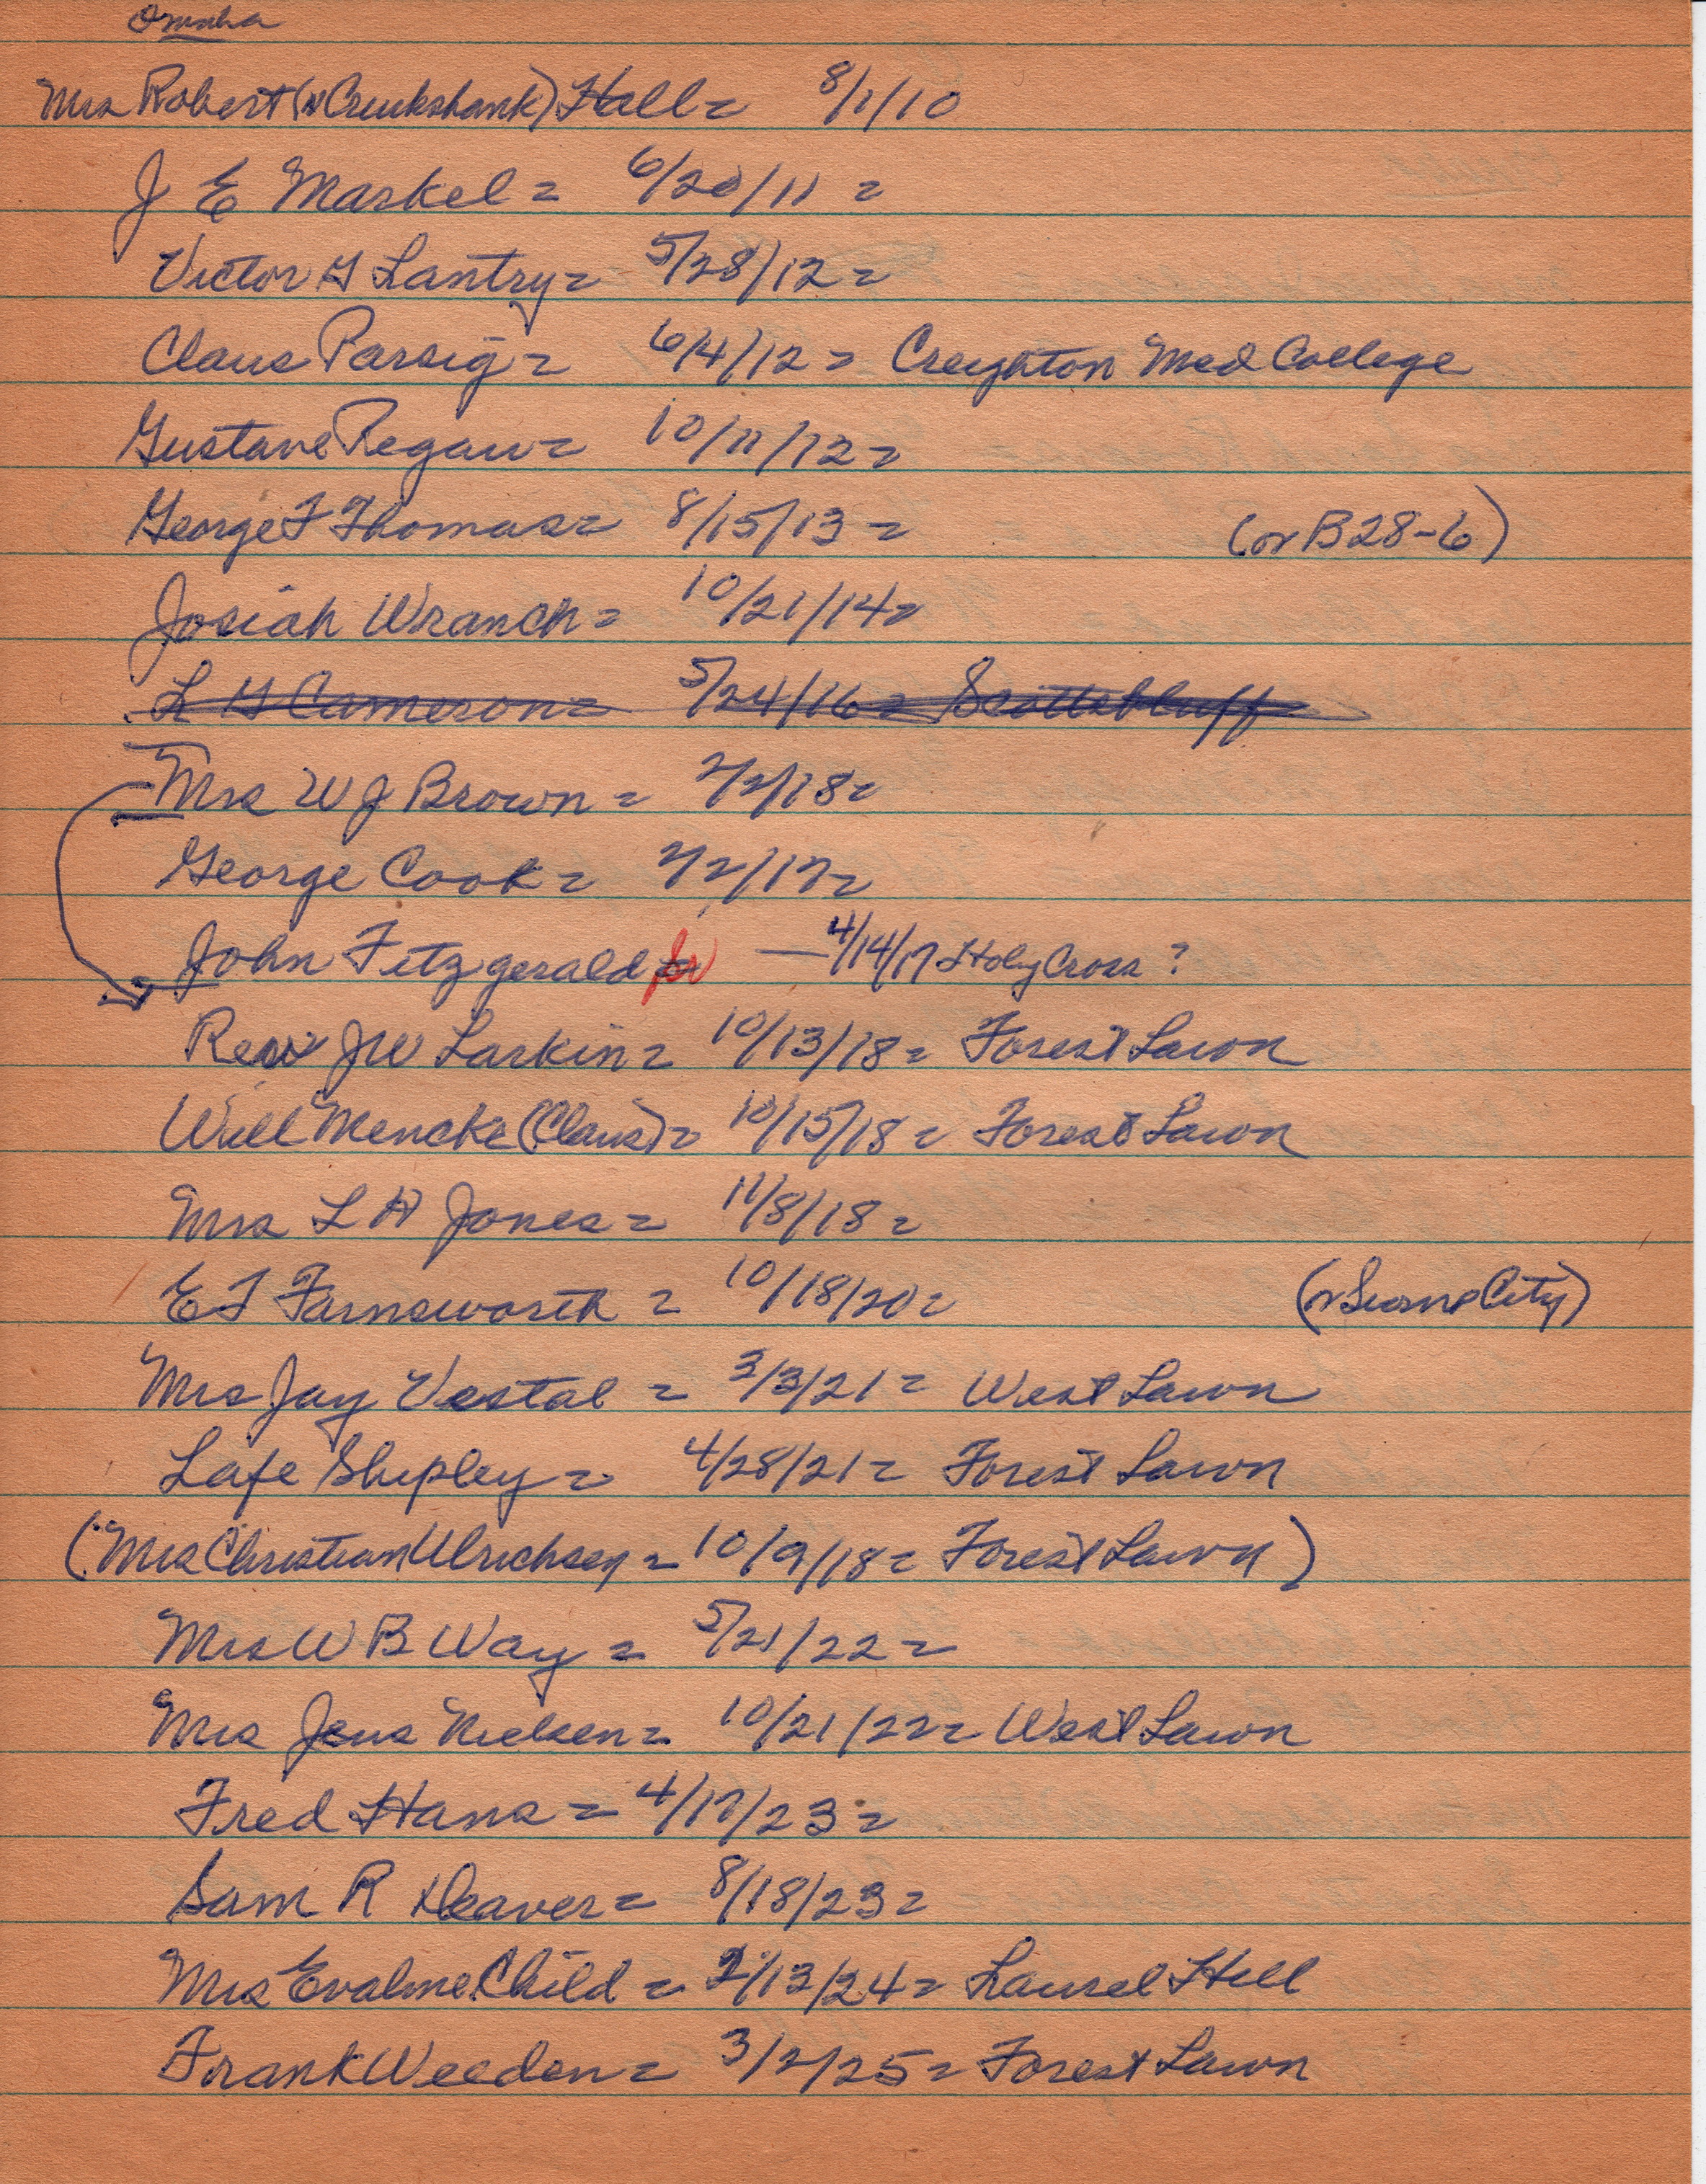 Omaha
Mrs Robert (n Cruikshank) Hall = 8/1/10
J E Markel = 6/20/11 =
Victor G Lantry = 5/28/12 =
Claus Parsig = 6/4/12 = Creighton Med College
Gustave Regau = 10/11/12 =
George F Thomas = 8/15/13 = (or B28-6)
Josiah Wranch = 10/21/14 =
L G Cameron = 5/24/16 = Scottsbluff
Mrs W J Brown = 2/2/18 =
George Cook = 2/2/17 =
John Fitzgerald Sr — 4/14/17 Holy Cross ?
Rev J W Larkin = 10/13/18 = Forest Lawn
Will Mencke (Claus) = 10/15/18 = Forest Lawn
Mrs L H Jones = 11/8/18 =
E F Farnsworth = 10/18/20 = City)
Mrs Jay Vestal = 3/3/21 = West Lawn
Lafe Shipley = 4/28/21 = Forest Lawn
(Mrs Christian Ulrichsen = 10/9/18 = Forest Lawn)
Mrs W B Way = 5/21/22 =
Mrs Jens Nielsen = 10/21/22 = West Lawn
Fred Hans = 4/17/23 =
Sam R Deaver = 8/18/23 =
Mrs Evaline Child = 2/13/24 = Laurel Hill
Frank Weeden = 3/2/25 = Forest Lawn